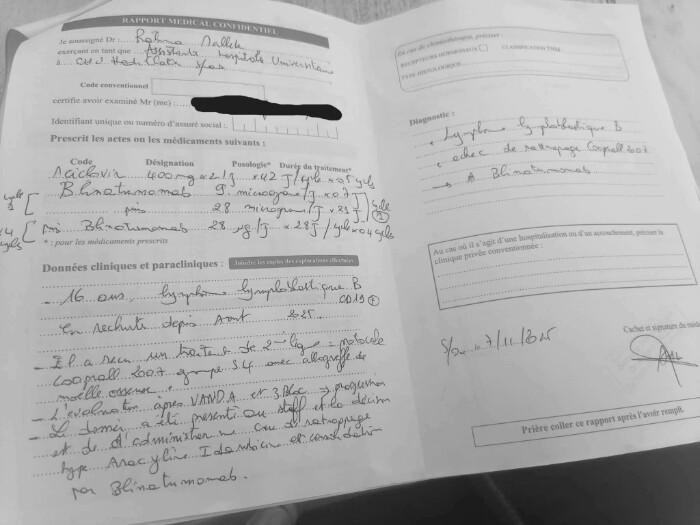 RAPPORT MEDICAL CONFIDENTIEL
Je soussigné Dr : Rahma
exerçant en tant que Assistante hospitalo Universitaire
à CHU Hedi Chaker Sfax
Code conventionnel
certifie avoir examiné Mr (me) :
Identifiant unique ou numéro d'assuré social :
Prescrit les actes ou les médicaments suivants :
Code Désignation Posologie* Durée du traitement*
Aciclovir 400 mg x 2/j x 42 J / cycle x 05 cycles
Blinatumomab 9 microgrammes/J x 07 J
puis 28 microgrammes/J x 21 J
puis Blinatumomab 28 µg/J x 28 J / cycle x 04 cycles
* : pour les médicaments prescrits
Données cliniques et paracliniques : Joindre les copies des explorations effectuées
- 16 ans, lymphome lymphoblastique B
CD19 +
en rechute depuis Aout 2025
- Il a reçu un traitement de 2ème ligne = protocole
Cooprall 2007 groupe S4 avec allogreffe de
moelle osseuse.
- L'évaluation après VANDA et 3 Bloc → progression
- Le dossier a été présenté au staff et la décision
est de d'administrer une cure de rattrapage
type Aracytine Idarubicine et consolidation
par Blinatumomab.
En cas de chimiothérapie, préciser :
RECEPTEURS HORMONAUX CLASSIFICATION TNM
TYPE HISTOLOGIQUE
Diagnostic :
Lymphome lymphoblastique B
echec de rattrapage Cooprall 2007
→ Blinatumomab
Au cas où il s'agit d'une hospitalisation ou d'un accouchement, préciser la
clinique privée conventionnée :
Sfax 7/11/2025
Cachet et signature du
Prière coller ce rapport après l'avoir rempli.